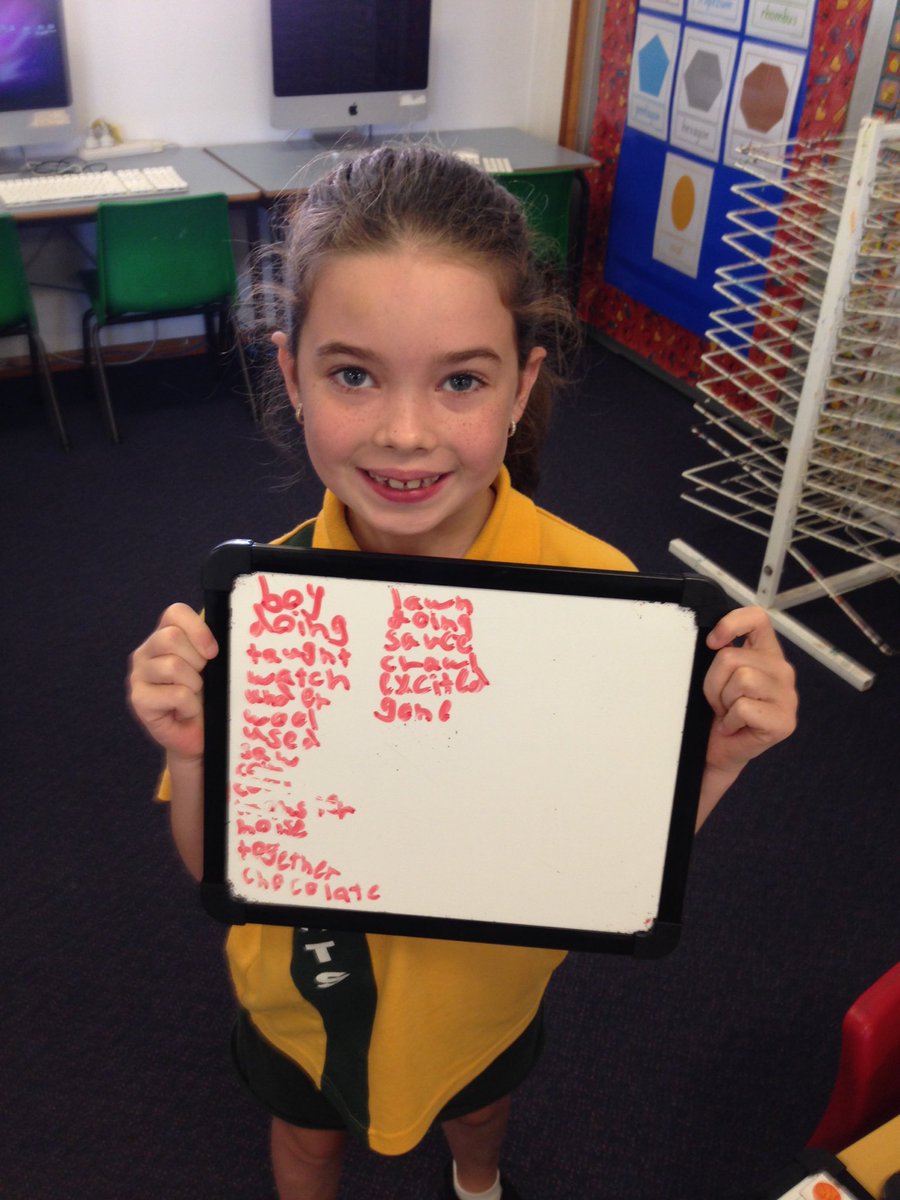 boy
doing
taught
watch
under
wool
used
noise
together
chocolate
lawn
doing
sauce
crawl
excited
gone
TS
pentagon
hexagon
rhombus